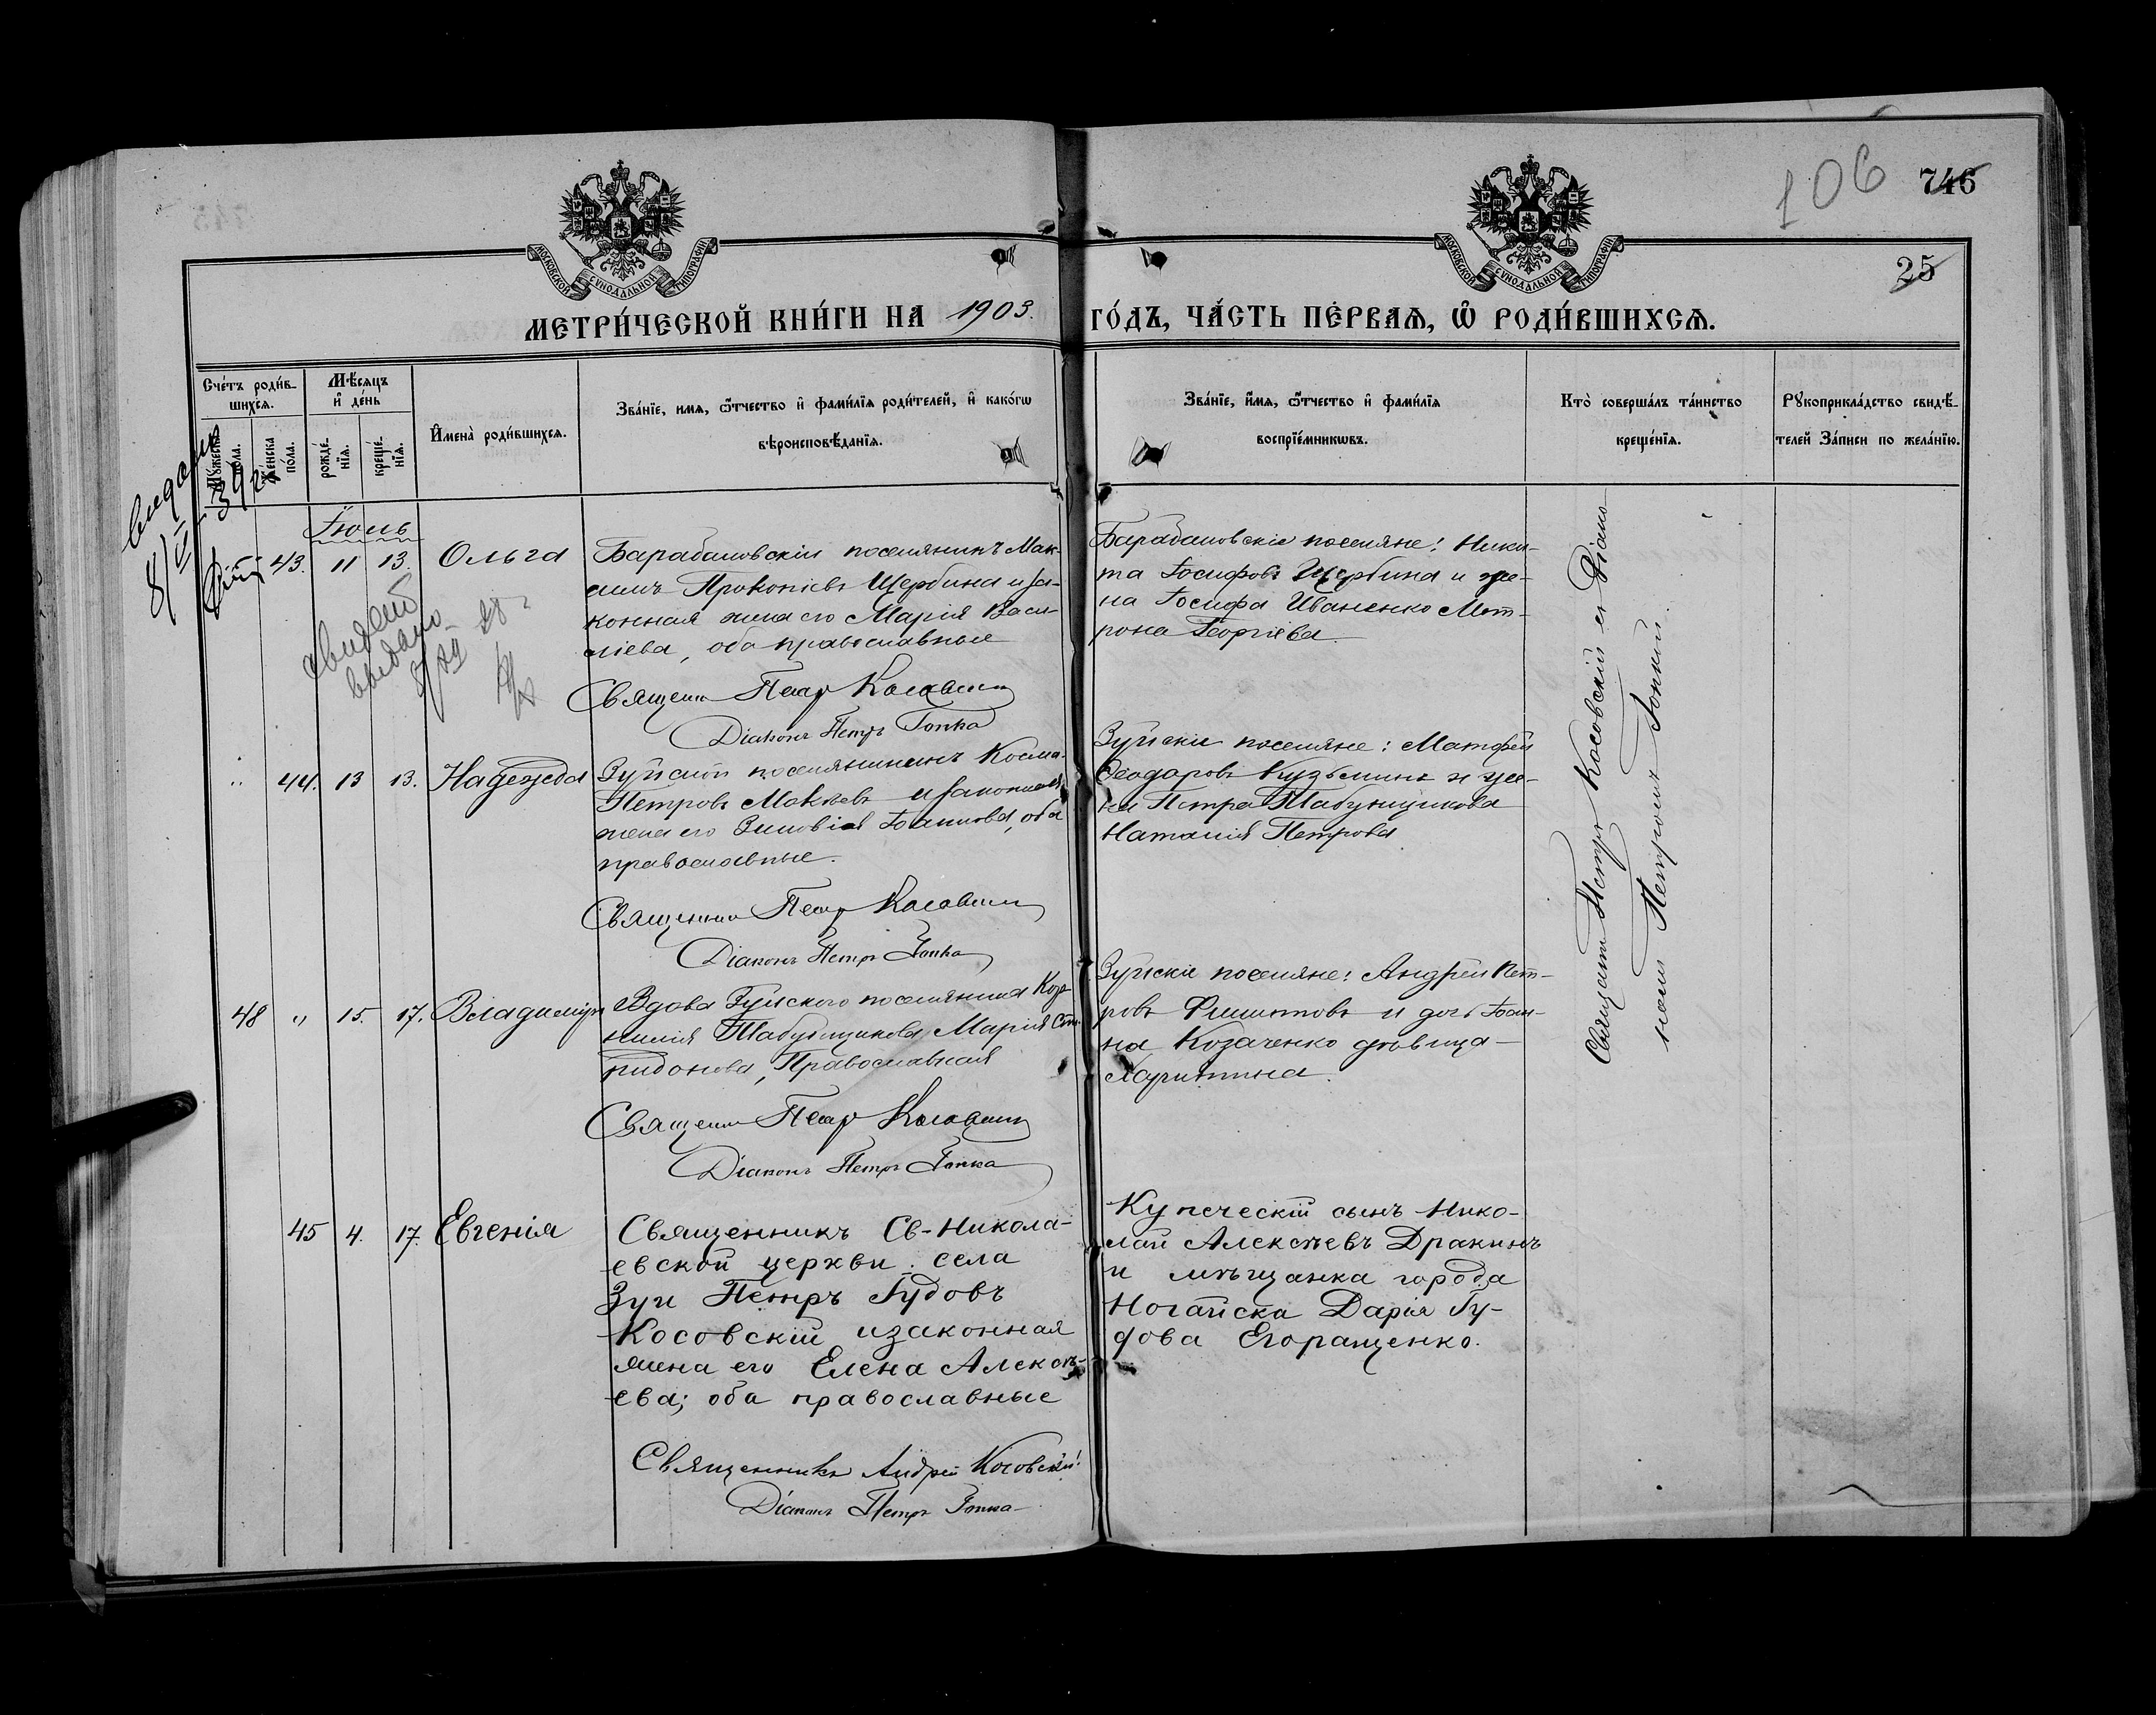 106
746
25
МОСКОВСКОЙ СУНОДАЛЬНОЙ ТИПОГРАФІИ
МОСКОВСКОЙ СУНОДАЛЬНОЙ ТИПОГРАФІИ
МЕТРИ́ЧЕСКОЙ КНИ́ГИ НА 1903. ГО́ДЪ, ЧА́СТЬ ПЕ́РВАѦ, Ѽ РОДИ́ВШИХСѦ.
Сче́тъ роди́в-
шихсѧ.
Мѣ́сѧцъ
и҆ де́нь
Мꙋжеска
по́ла.
Же́нска
по́ла.
рожде́-
нїѧ.
креще́-
нїѧ.
И҆мена̀ роди́вшихсѧ.
Зва́нїе, имѧ, ѻ҆́тчество и҆ фами́лїѧ роди́телей, и҆ како́гѡ
вѣроисповѣ́данїѧ.
Зва́нїе, и҆́мѧ, ѻ҆́тчество и҆ фами́лїѧ
воспрїе́мникѡвъ.
Кто̀ соверша́лъ та́инство
креще́нїѧ.
Рꙋкоприкла́дство свидѣ́-
телей за́писи по жела́нїю.
Іюль
43. 11 13. Ольга
Барабановскій поселянинъ Мак-
симъ Прокопіевъ Щербина и за-
конная жена его Марія Васи-
ліева, оба православные
Священ Петр Косовскій
Діаконъ Петръ Гопка
Барабановскіе поселяне: Ники-
та Іосифовъ Щербина и же-
на Іосифа Иваненко Мат-
рона Георгіева.
свидет
выдано
„ 44. 13 13. Надежда
Зуйскій поселянинъ Косма
Петровъ Мокѣевъ и законная
жена его Зиновія Іоаннова, оба
православные.
Священник Петр Косовскій
Діаконъ Петръ Гопка
Зуйскіе поселяне: Матфей
Ѳеодоровъ Кузьминъ и же-
на Петра Табунщикова
Наталія Петрова
48 „ 15. 17. Владиміръ
Вдова Зуйского поселянина Кор-
нилія Табунщикова, Марія Спи-
ридонова, Православная
Священ Петр Косовскій
Діаконъ Петръ Гопка
Зуйскіе поселяне: Андрей Пет-
ровъ Филиповъ и дочь Іоан-
на Козаченко дѣвица
Харитина.
45 4. 17. Евгенія
Священникъ Св-Никола-
евской церкви села
Зуи Петръ Гудовъ
Косовскій и законная
жена его Елена Алексѣ-
ева; оба православные
Священникъ Андрей Косовскій
Діаконъ Петръ Гопка
Купеческій сынъ Нико-
лай Алексѣевъ Дракинъ
и мѣщанка города
Ногайска Дарія Гу-
дова Егоращенко.
Священ Петръ Косовскій съ Діако-
номъ Петромъ Гопкой.